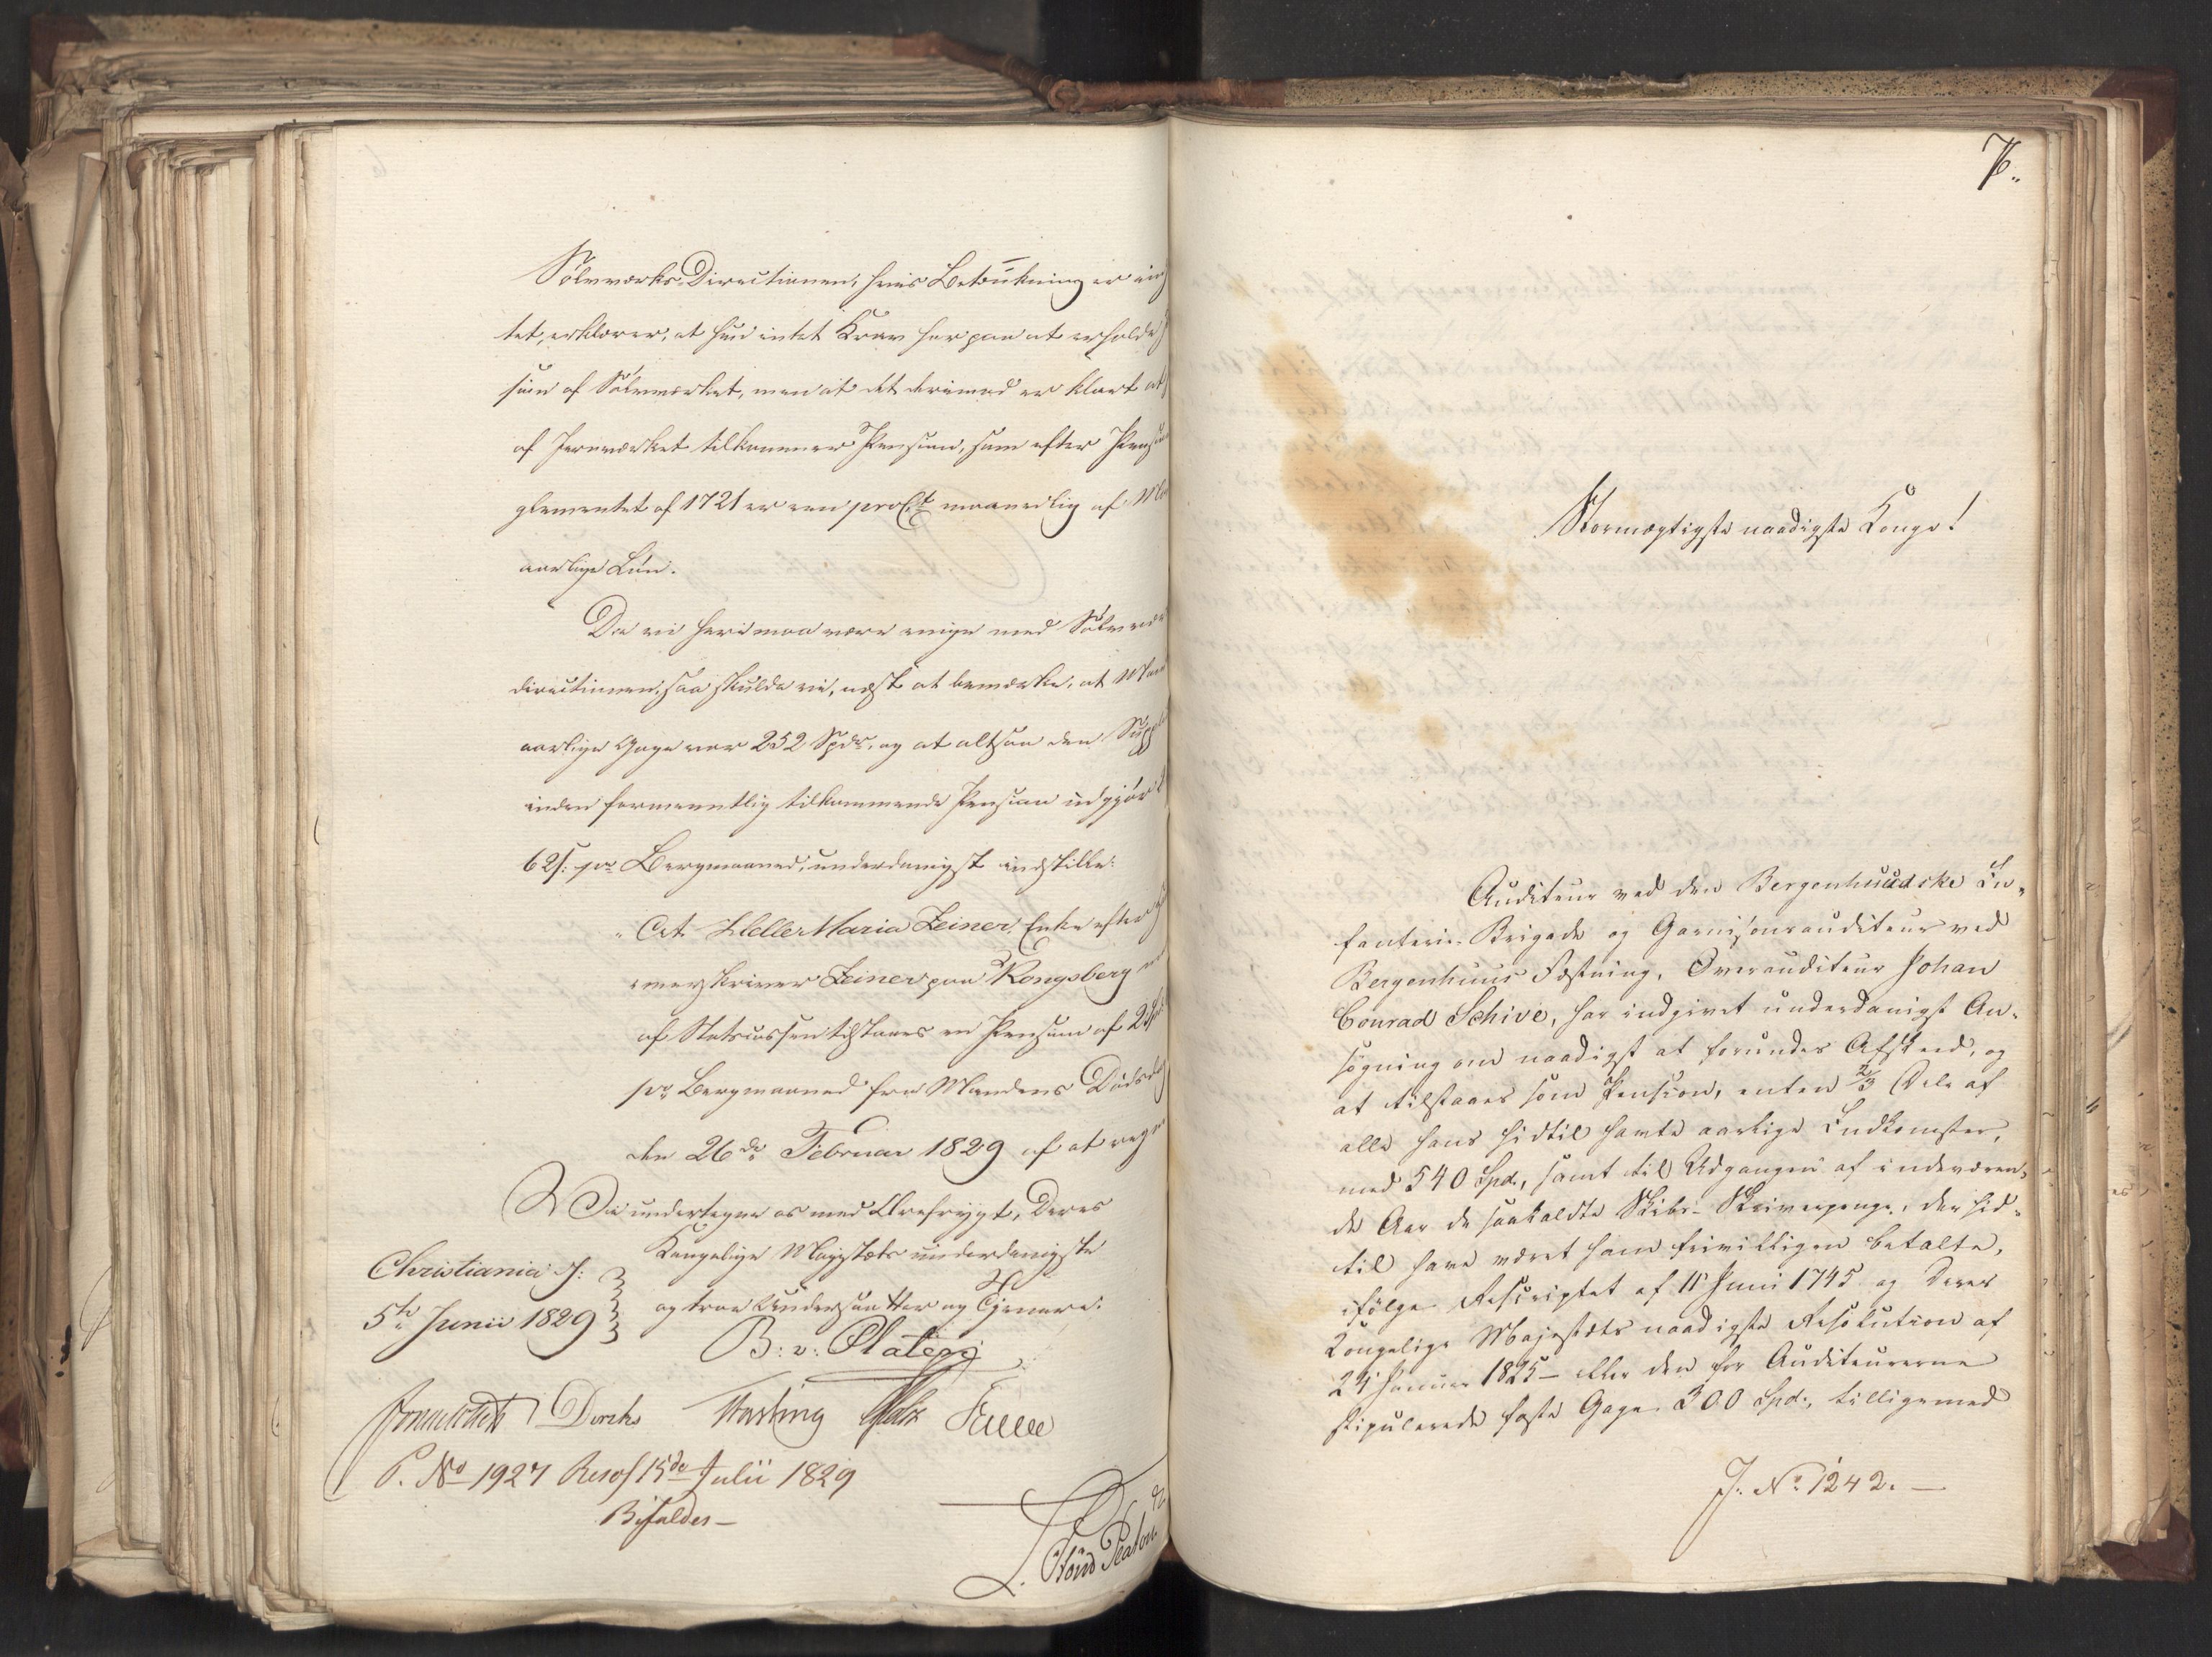 Sølvværks-Directionen, hvis Betænkning er ind
tet, erklærer, at hun intet Krav har paa at erholde
sion af Sølvværket, men at det derimod er klart at
af Jernværket tilkommer Pension, som efter Pensions
glementet af 1721 er een pro Ct maanedlig af
aarlige Løn.
Da vi heri maa være enige med Sølvværks
directionen, saa skulde vi, næst at bemærke, at Mand
aarlige Gage var 252 Spdr, og at altsaa den Suppli
inden formeentlig tilkommende Pension udgjør 2
62 s: pr Bergmaaned, underdanigst indstille:
"At Helle Maria Zeiner, Enke efter
skriver Zeiner paa Kongsberg
af Statscassen tilstaaes en Pension af 2 Spd
pr Bergmaaned fra Mandens Dødsdag
den 26de Februar 1829 af at regne
Vi undertegne os med Ærefrygt, Deres
Kongelige Majestæts underdanigste
og troe Undersaatter og Tjenere.
Christiania d:
5te Junii 1829
B: v: Platen
Diriks Motzfeldt Holst Fasting
P. No 1927 Resol 15de Julii 1829
Bifaldes—
7.
Stormægtigste naadigste Konge!
Auditeur ved den Bergenhuusiske In-
fanterie-Brigade og Garnisonsauditeur ved
Bergenhuus Fæstning, Overauditeur Johan
Conrad Schive, har indgivet underdanigst An-
søgning om naadigst at forundes Afsked, og
at tilstaaes som Pension, enten 2/3 Dele af
alle hans hidtil havte aarlige Indkomster,
med 540 Spd., samt til Udgangen af indeværen-
de Aar de saakaldte Skibs-Skriverpenge, der hid-
til have været ham frivilligen betalte,
ifølge Rescriptet af 11 Juni 1745 og Deres
Kongelige Majestæts naadigste Resolution af
24 Januar 1825 — eller den for Auditeurerne
stipulerede faste Gage 300 Spd., tilligemed
J. No 1242. —